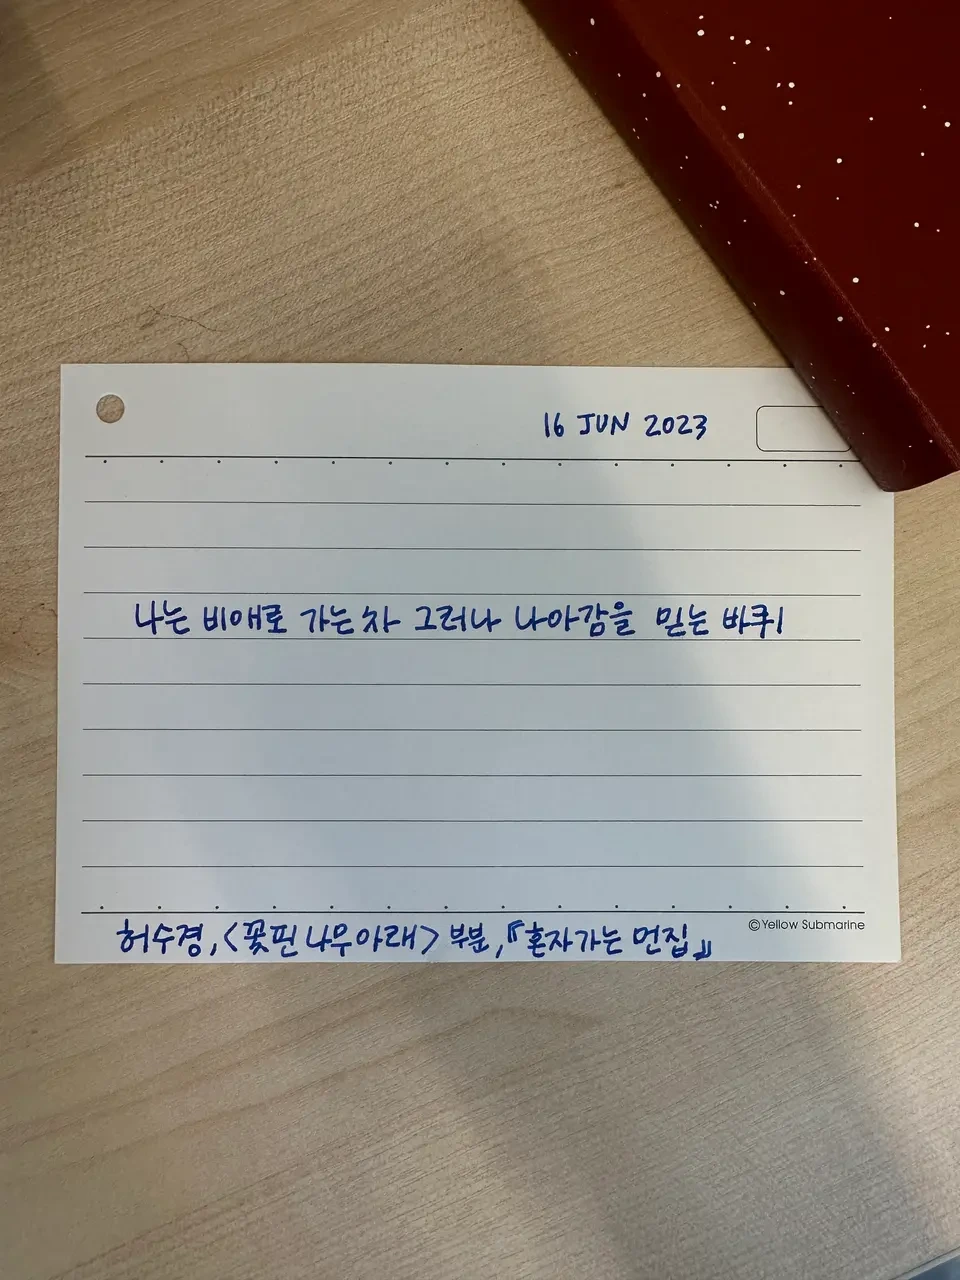 16 JUN 2023
나는 비애로 가는 차 그러나 나아감을 믿는 바퀴
©Yellow Submarine
허수경, <꽃핀 나무 아래> 부분, 『혼자 가는 먼 집』